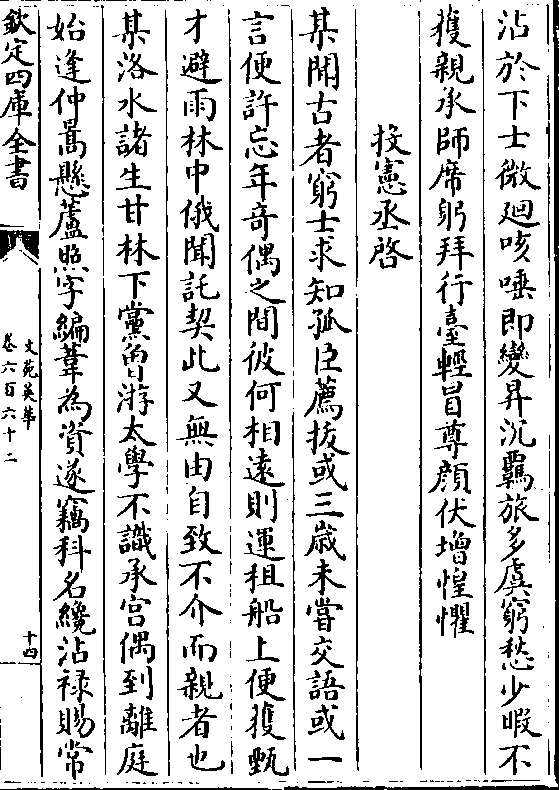 沾於下士微廻咳唾即變昇沉羇旅多虞窮愁少暇不
獲親承師席躬拜行臺輕冒尊顔伏增惶懼
投憲丞啓
某聞古者窮士求知孤臣薦拔或三歳未嘗交語或一
言便許忘年奇偶之間彼何相遠則運租船上便獲甄
才避雨林中俄聞託契此又無由自致不介而親者也
某洛水諸生甘林下黨曽游太學不識承宫偶到離庭
始逢仲暠懸蘆照字編葦為資遂竊科名纔沾禄賜常
欽定四庫全書
文苑英華
卷六百六十二
十四